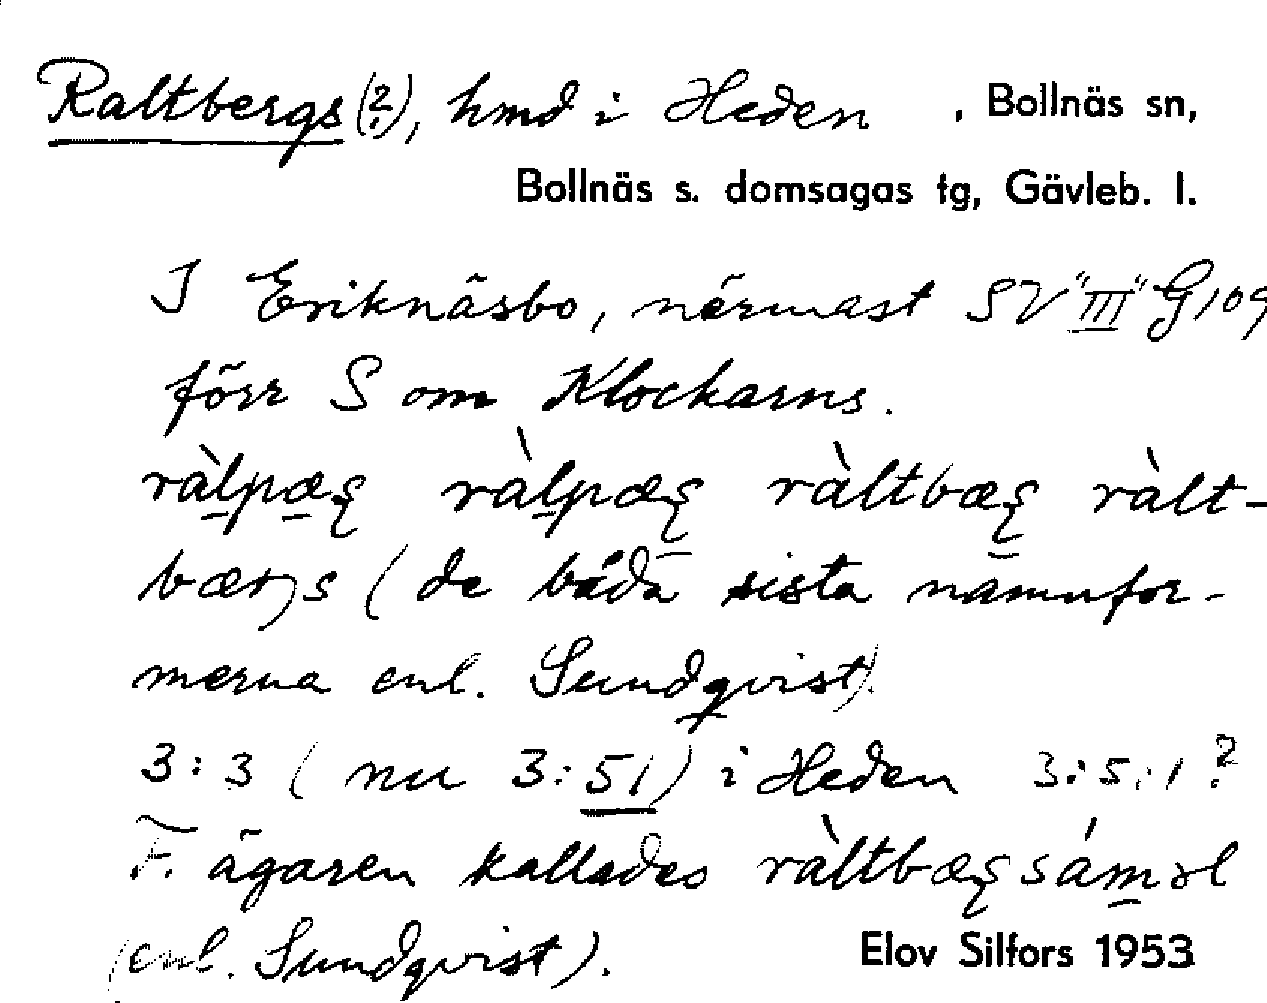 Raltbergs(?), hmd i Heden , Bollnäs sn,
Bollnäs s. domsagas tg, Gävleb. l.
I Eriknäsbo, närmast SV "III" G109
förr S om Klockarns.
ràlpæş ràlpæş ràltbæş ràlt-
bærjs (de båda sista namnfor-
merna enl. Sundqvist).
3:3 (nu 3:51) i Heden 3:5:1?
F. ägaren kallades ràltbæşsáməl
(enl. Sundqvist).
Elov Silfors 1953